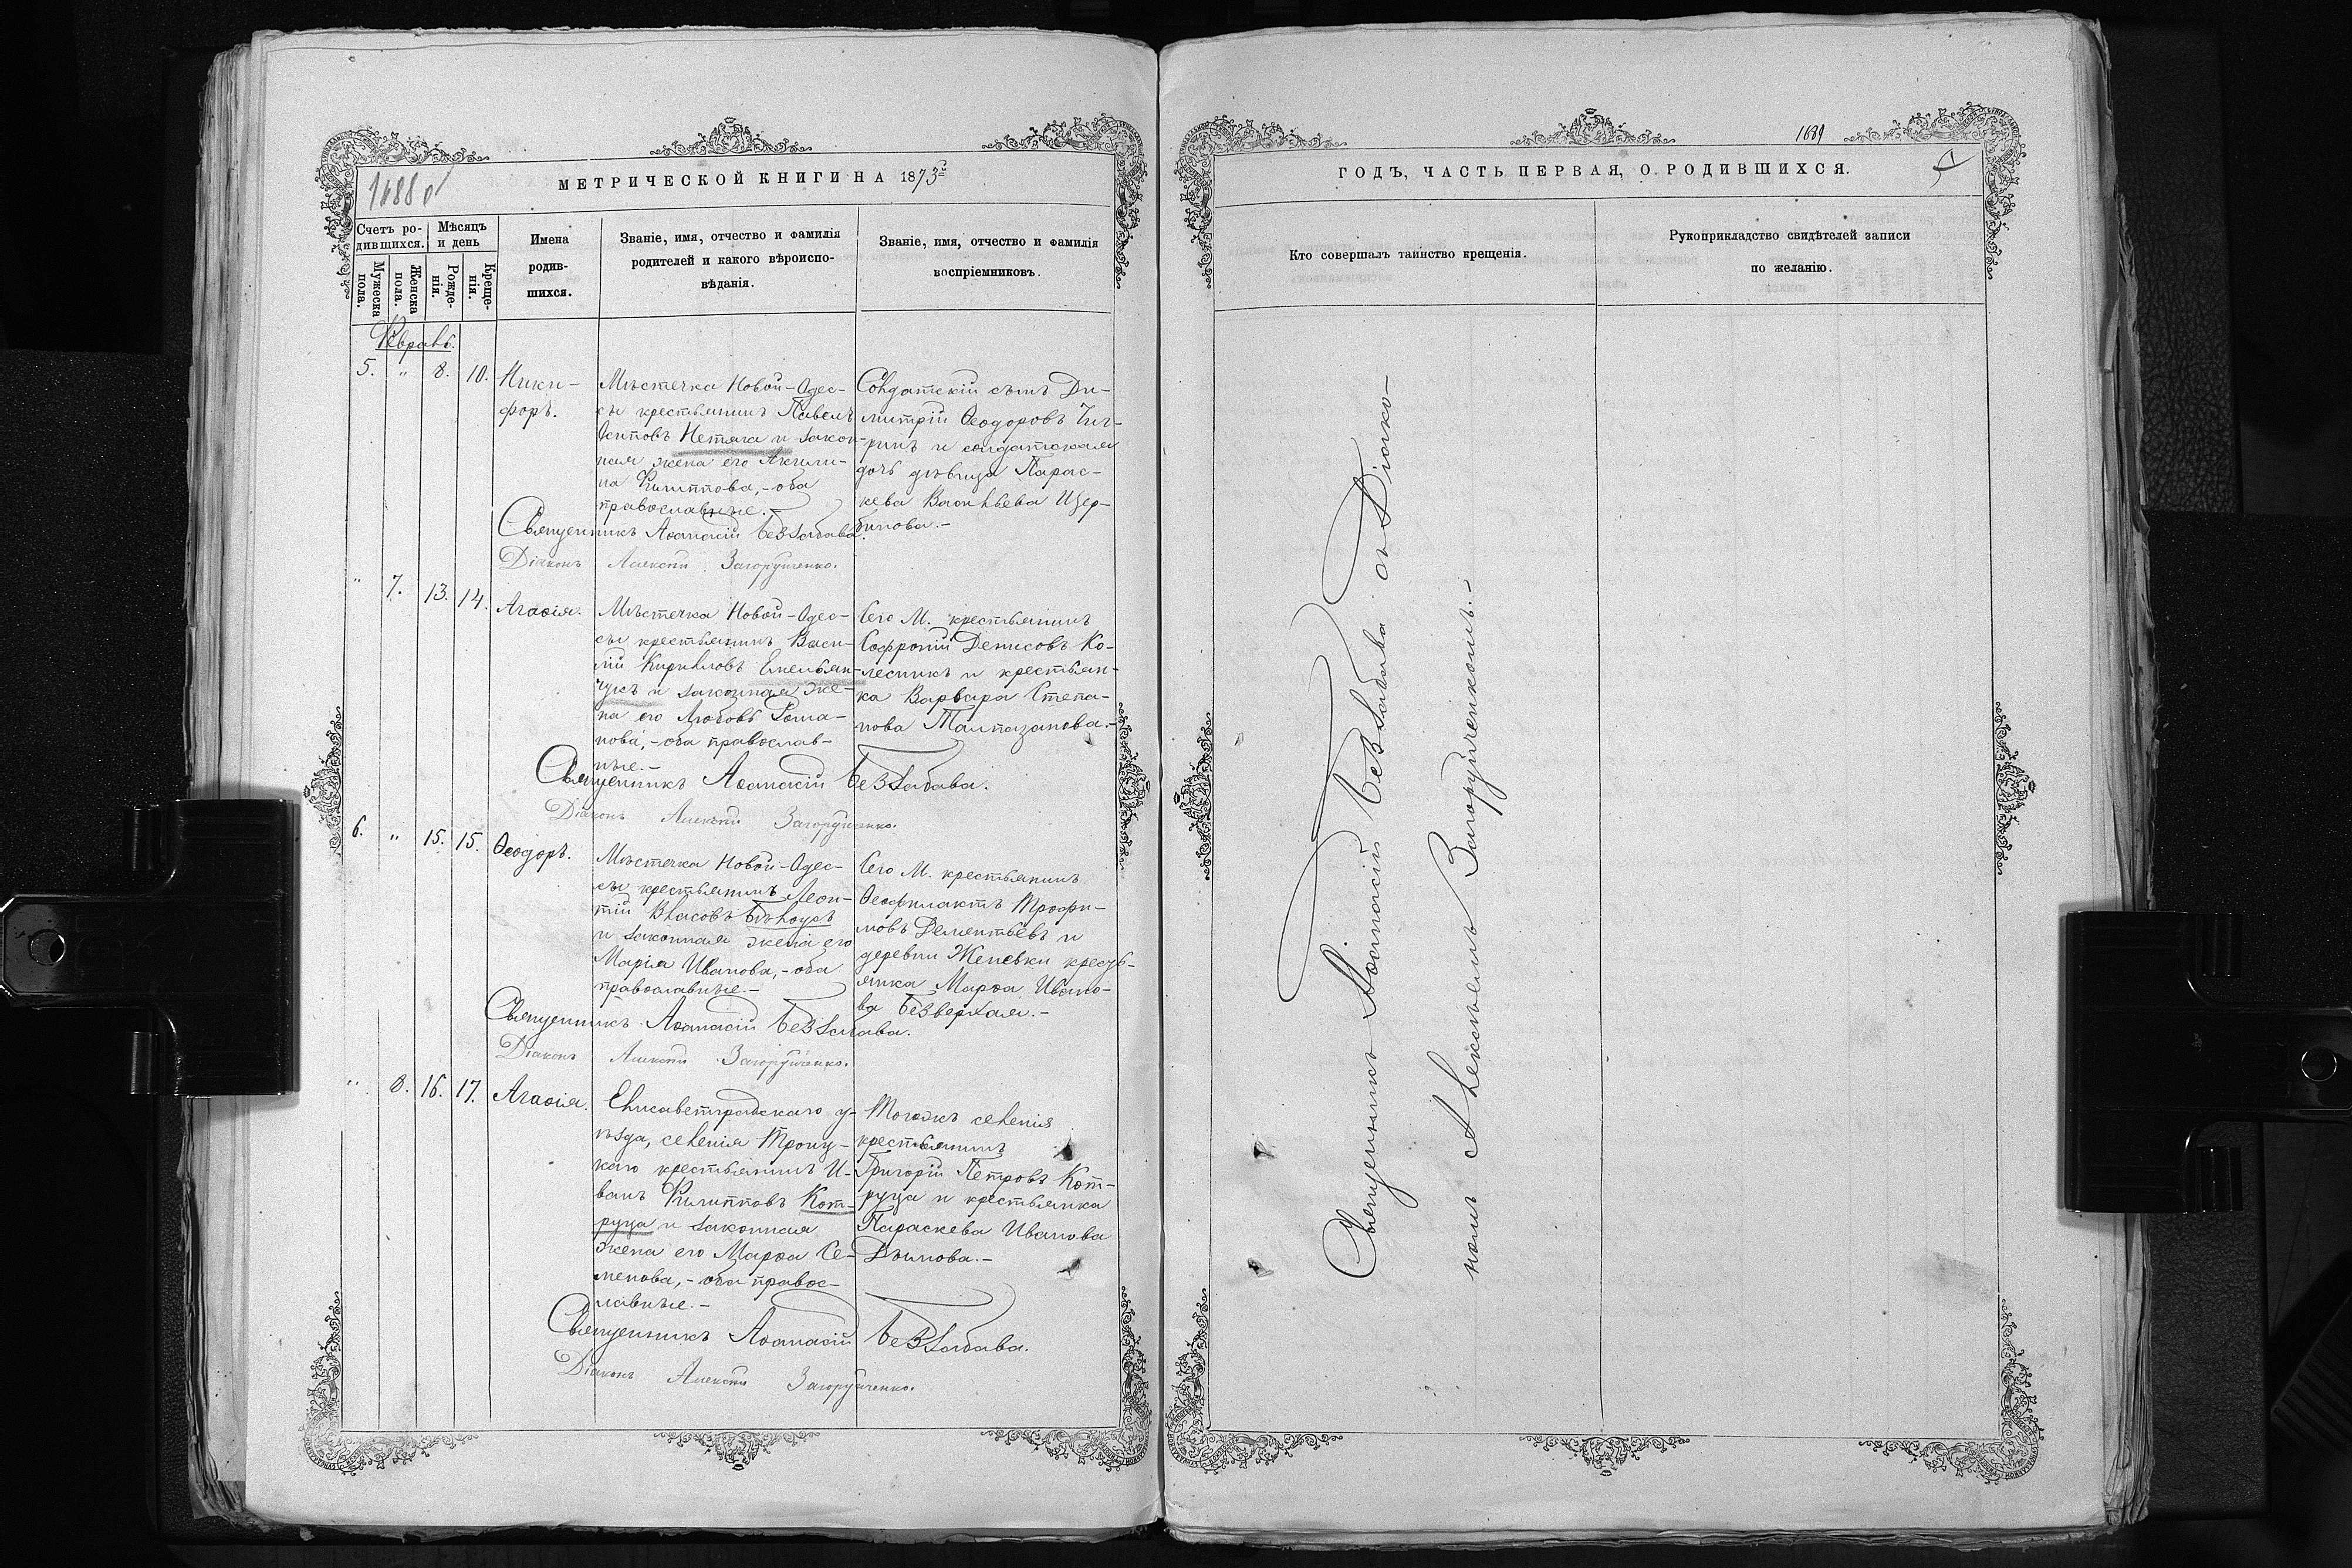 1688 об
МЕТРИЧЕСКОЙ КНИГИ НА 1873й
Счетъ ро-
дившихся.
Мѣсяцъ
и день
Мужеска
пола.
Женска
пола.
Рожде-
нія.
Креще-
нія.
Имена
родив-
шихся.
Званіе, имя, отчество и фамилія
родителей и какого вѣроиспо-
вѣданія.
Званіе, имя, отчество и фамилія
воспріемниковъ.
Февраль.
5. " 8. 10.
Ники-
форъ.
Мѣстечка Новой-Одес-
сы крестьянинъ Павелъ
Осиповъ Нетяга и закон-
ная жена его Акили-
на Филиппова,-оба
православные.-
Солдатскій сынъ Ди-
митрій Ѳеодоровъ Чиг-
ринъ и солдатская
дочь дѣвица Парас-
кева Васильева Щер-
бинова.-
Священникъ Аѳанасій Беззабава.
Діаконъ Алексѣй Загоруйченко.
" 7. 13. 14.
Агаѳія.
Мѣстечка Новой-Одес-
сы крестьянинъ Васи-
лій Кириловъ Емельян-
чукъ и законная же-
на его Любовь Рома-
нова,-оба православ-
ные.-
Сего М. крестьянинъ
Софроній Денисовъ Ко-
лесникъ и крестьян-
ка Варвара Степа-
нова Талпазанова.-
Священникъ Аѳанасій Беззабава.
Діаконъ Алексѣй Загоруйченко.
6. " 15. 15.
Ѳеодоръ.
Мѣстечка Новой-Одес-
сы крестьянинъ Леон-
тій Власовъ Бѣлоусъ
и законная жена его
Марія Иванова,-оба
православные.-
Сего М. крестьянинъ
Ѳеофилактъ Трофи-
мовъ Дементьевъ и
деревни Женевки кресть-
янка Марѳа Ивано-
ва Безверхая.-
Священникъ Аѳанасій Беззабава.
Діаконъ Алексѣй Загоруйченко.
" 8. 16. 17.
Агаѳія.
Елисаветградскаго у-
ѣзда, селенія Троиц-
каго крестьянинъ И-
ванъ Филипповъ Кот-
руца и законная
жена его Марѳа Се-
менова,-оба правос-
лавные.-
Тогожъ селенія
крестьянинъ
Григорій Петровъ Кот-
руца и крестьянка
Параскева Иванова
Дымова.-
Священникъ Аѳанасій Беззабава.
Діаконъ Алексѣй Загоруйченко.
1689
ГОДЪ, ЧАСТЬ ПЕРВАЯ, О РОДИВШИХСЯ.
Кто совершалъ таинство крещенія.
Рукоприкладство свидѣтелей записи
по желанію.
Священникъ Аѳанасій Беззабава съ Діяко-
номъ Алексѣемъ Загоруйченкомъ.-